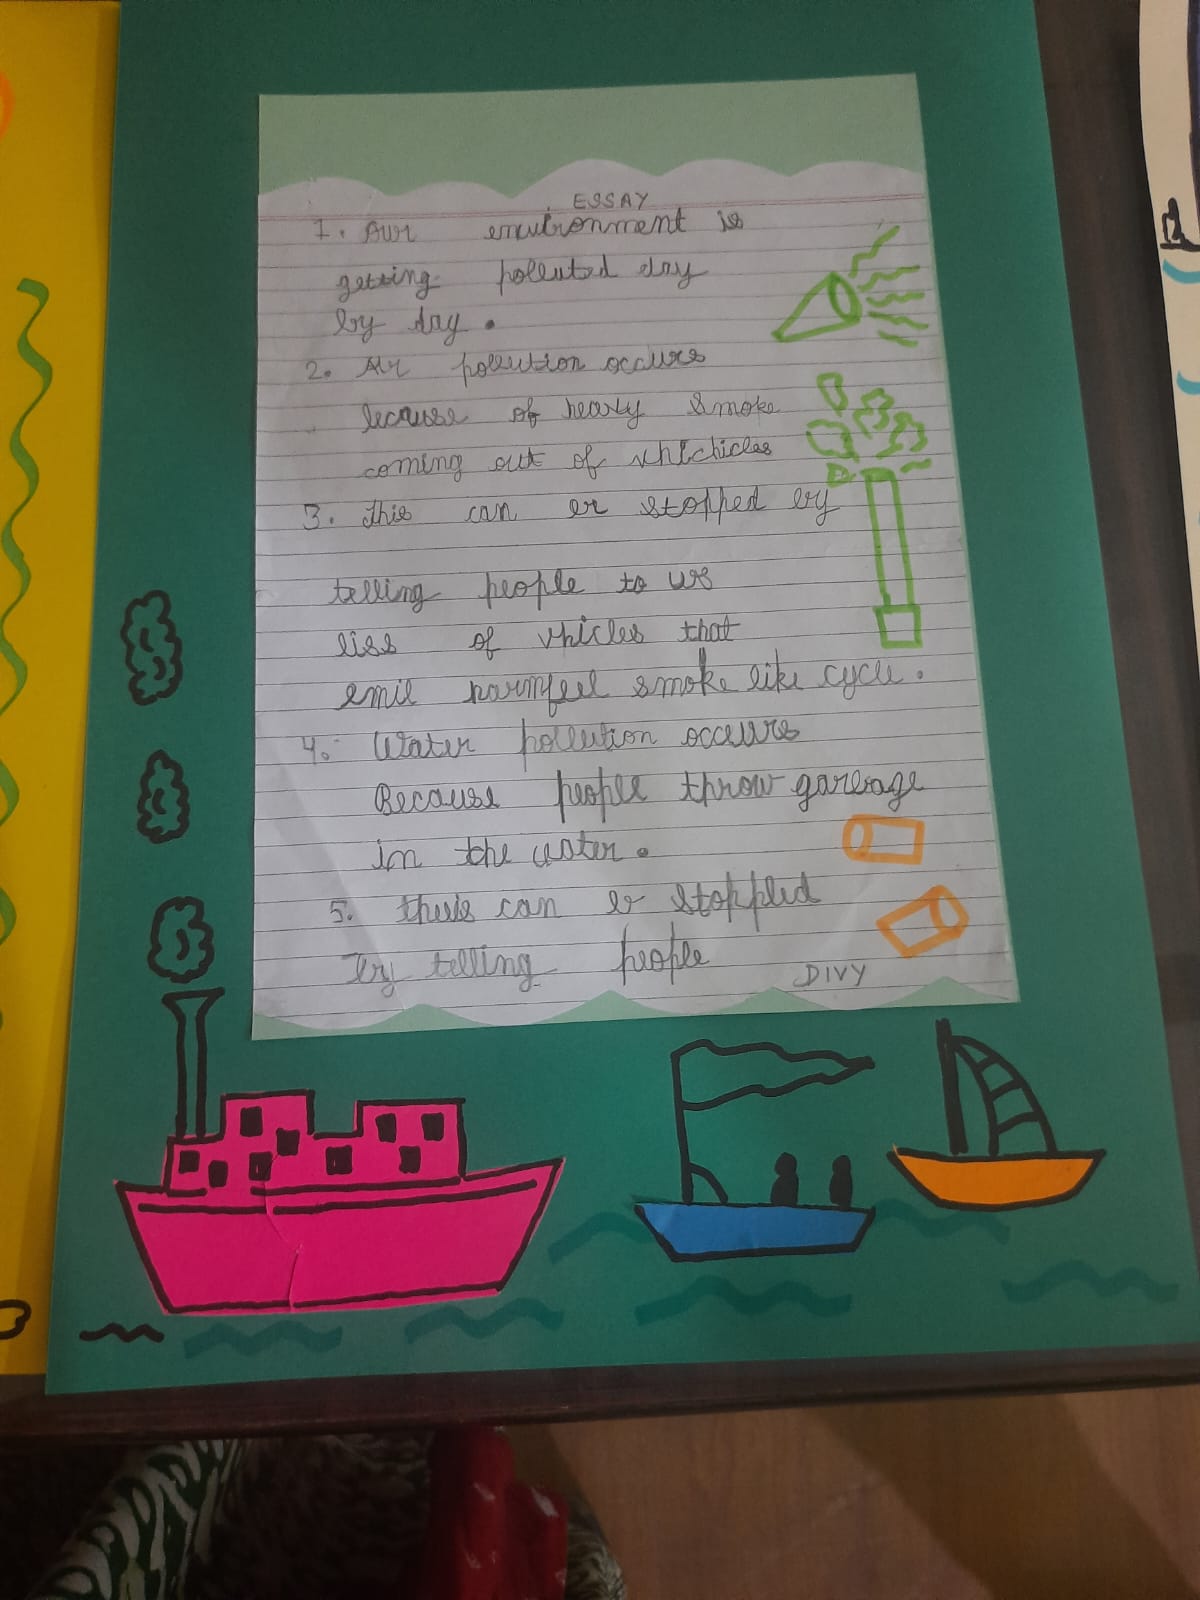 ESSAY
1. Our environment is
getting polluted day
by day.
2. Air pollution occurs
because of heavly smoke
coming out of vhichicles
3. this can be stopped by
telling people to us
liss of vhicles that
emil harmfeel smoke like cycle.
4. Water pollution occeurs
Because people throw garbage
in the water.
5. theis can be stoppled
by telling people
DIVY